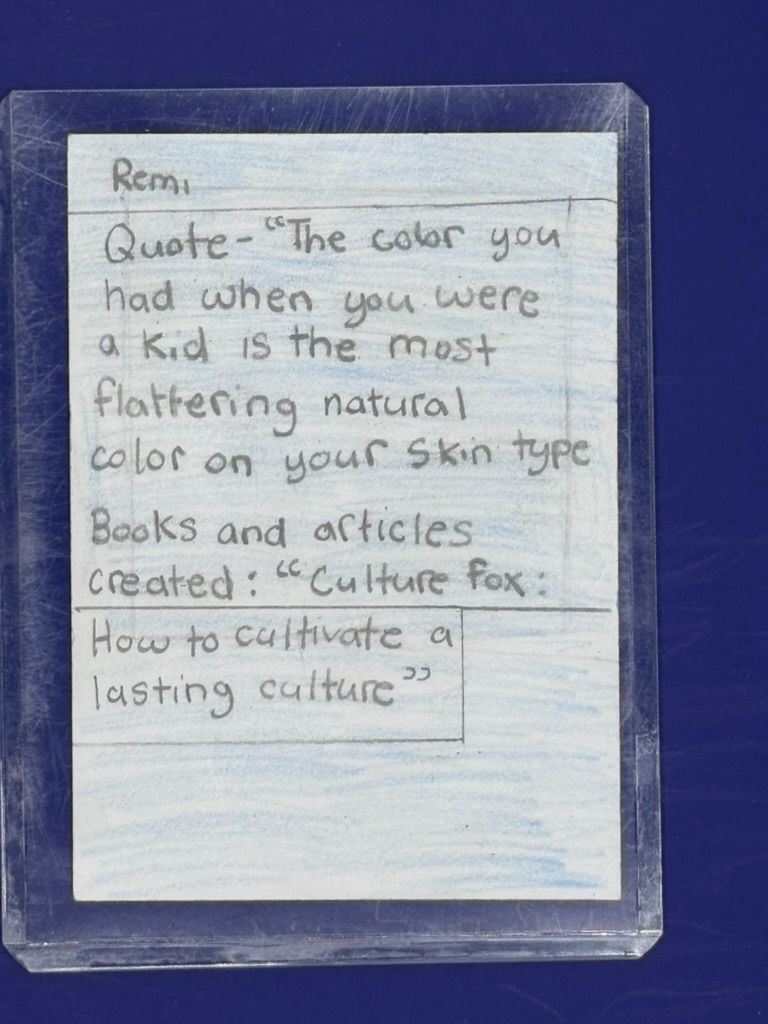 Remi
Quote- "The color you
had when you were
a kid is the most
flattering natural
color on your skin type
Books and articles
created: "Culture fox:
How to cultivate a
lasting culture"